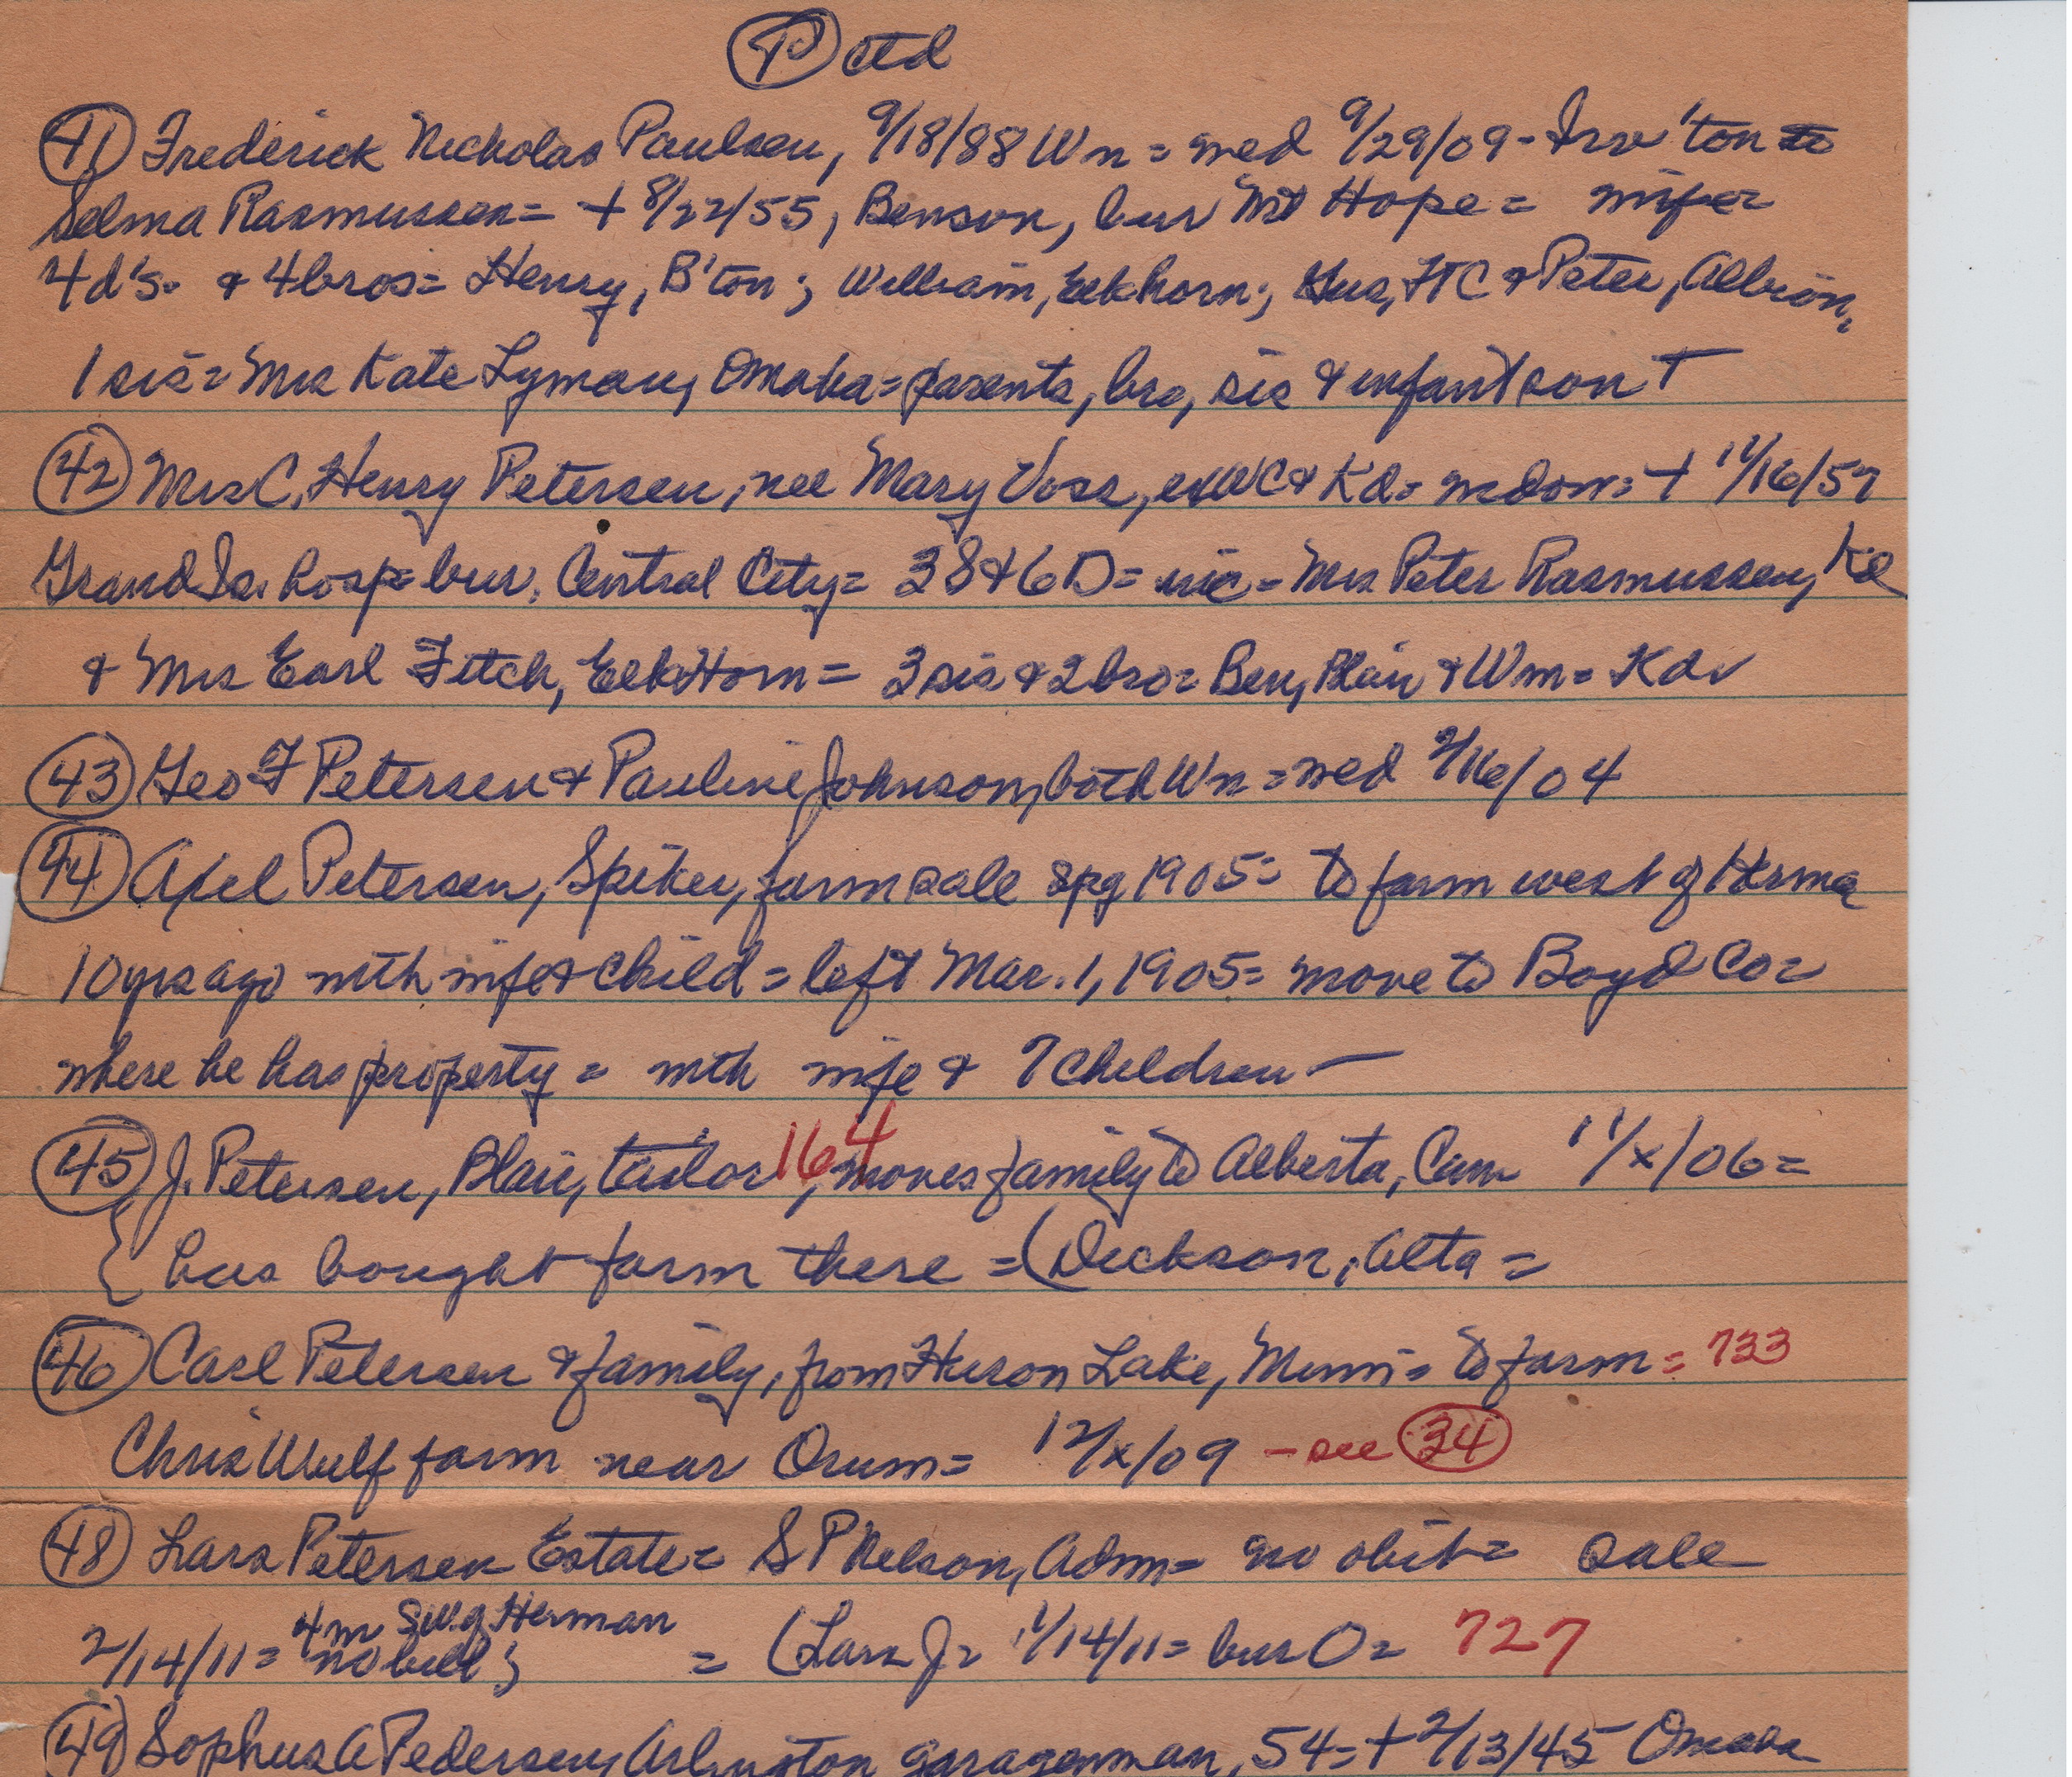 (P) ctd
(41) Frederick Nicholas Paulsen, 9/18/88 Wn = med 9/29/09 - Irv'ton to
Selma Rasmussen = + 8/22/55, Benson, bur Mt Hope = wife =
4 d's. & 4 bros = Henry, B'ton; William, Elkhorn; Gus, FTC & Peter, Albion,
1 sis = Mrs Kate Lyman, Omaha = parents, bro, sis & infant son +
(42) Mrs C. Henry Petersen, nee Mary Voss, ex WC & Kd = = + 11/16/57
Grand Is. hosp = bur. Central City = 3S & 6D = inc = Mrs Peter Rasmussen, Kd
& Mrs Earl Fitch, Elk Horn = 3 sis & 2 bro = Ben, Blair & Wm = Kdv
(43) Geo F Petersen & Pauline Johnson, both Wn = med 2/16/04
(44) Axel Petersen, Spiker, farm sale spg 1905 = to farm west of Herman
10 yrs ago with wife & child = left Mar. 1, 1905 = move to Boyd Co =
where he has property = with wife & 7 children -
(45) J. Petersen, Blair, tailor 164, moves family to Alberta, Can 11/x/06 =
{ has bought farm there = (Dickson, Alta =
(46) Carl Petersen & family, from Heron Lake, Minn = to farm = 733
Chris Wulf farm near Orum = 12/x/09 - see (34)
(48) Lars Petersen Estate = S P Nelson, Adm = no obit = sale
4m SW of Herman
2/14/11 = no bill; = (Lars J = 1/14/11 = bur O = 727
(49) Sophus A Pedersen, Arlington garageman, 54 = + 2/13/45 Omaha